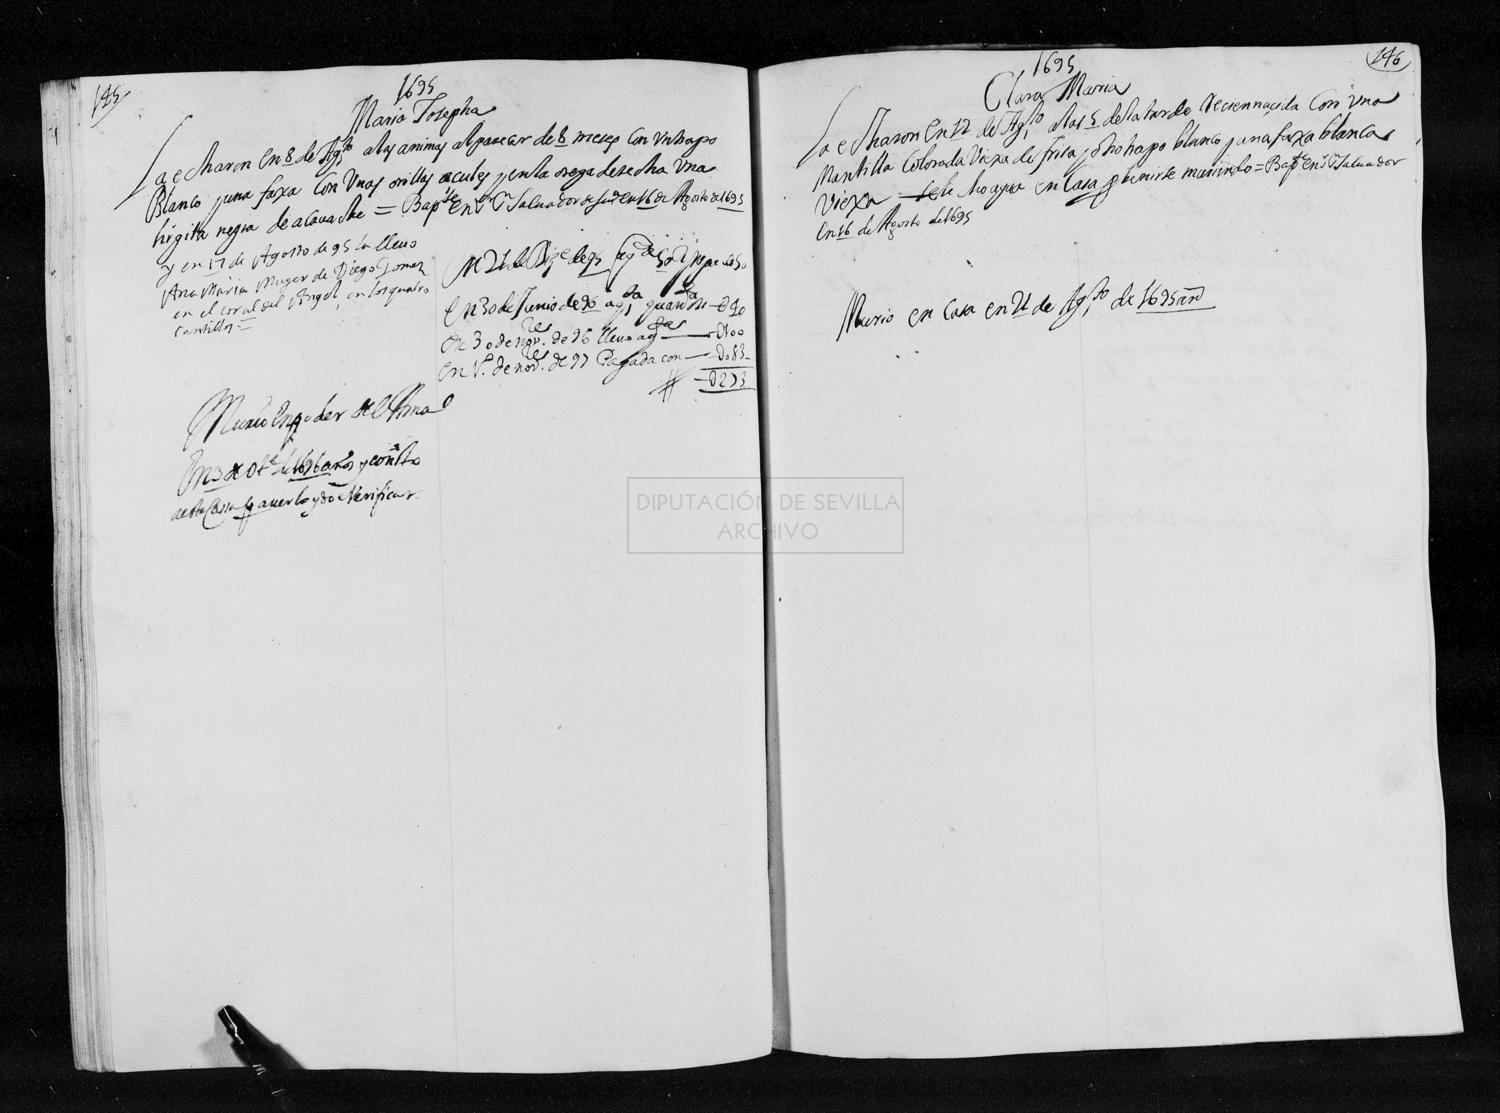 145
1695
Maria Josepha
La echaron en 8 de Ag.to a las animas al parecer de 8 meses con un hapo
Blanco y una faxa con unas orillas açules y en la orega derecha una
higita negra de acauache = Bap.da en Sr Saluador de Seu.a en 16 de Agosto de 1695
y en 17 de Agosto de 95 la lleuo
Ana Maria Muger de Diego Gomez
en el coral del Angel, en los quatro
cantillos =
en 30 de Junio de 96 ag.ta quarenta —040
en 30 de nov.re de 96 lleuo ag.ta —0100
en 1.º de nov.re de 97 Pagada con —083
—0273
Murio En poder del Ama
En 3 de de 1696 años y
de esta Cassa auerlo verificar
146
1695
Clara Maria
La echaron en 12 de Ag.to a las 5 de la tarde Reciennaçida con una
Mantilla Colorada Viexa de frisa y otro hapo blanco y una faxa blanca
Viexa — agua en Casa p.r benirse muriendo = Bap.da en Sr Saluador
en 16 de Agosto de 1695
Murio en Casa en 21 de Ag.to de 1695 años
DIPUTACIÓN DE SEVILLA
ARCHIVO